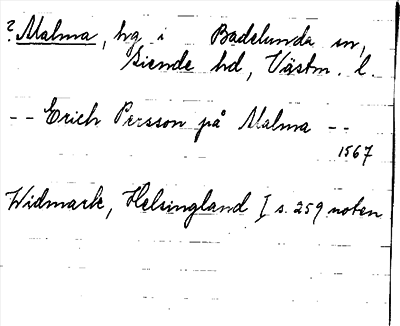 ? Malma, hg i Badelunda sn,
Siende hd, Västm. l.
-- Erich Persson på Malma --
1567
Widmark, Helsingland I s. 259 noten